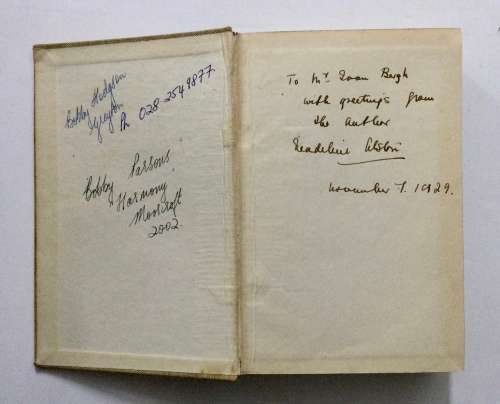 Bobby Hudson
Greyton
Ph 028 2549877
Bobby Parsons
Harmony
Moorcraft
2002
To Mr. Daan Bergh
with greetings from
the author
Madeline Alston
November 7. 1929.